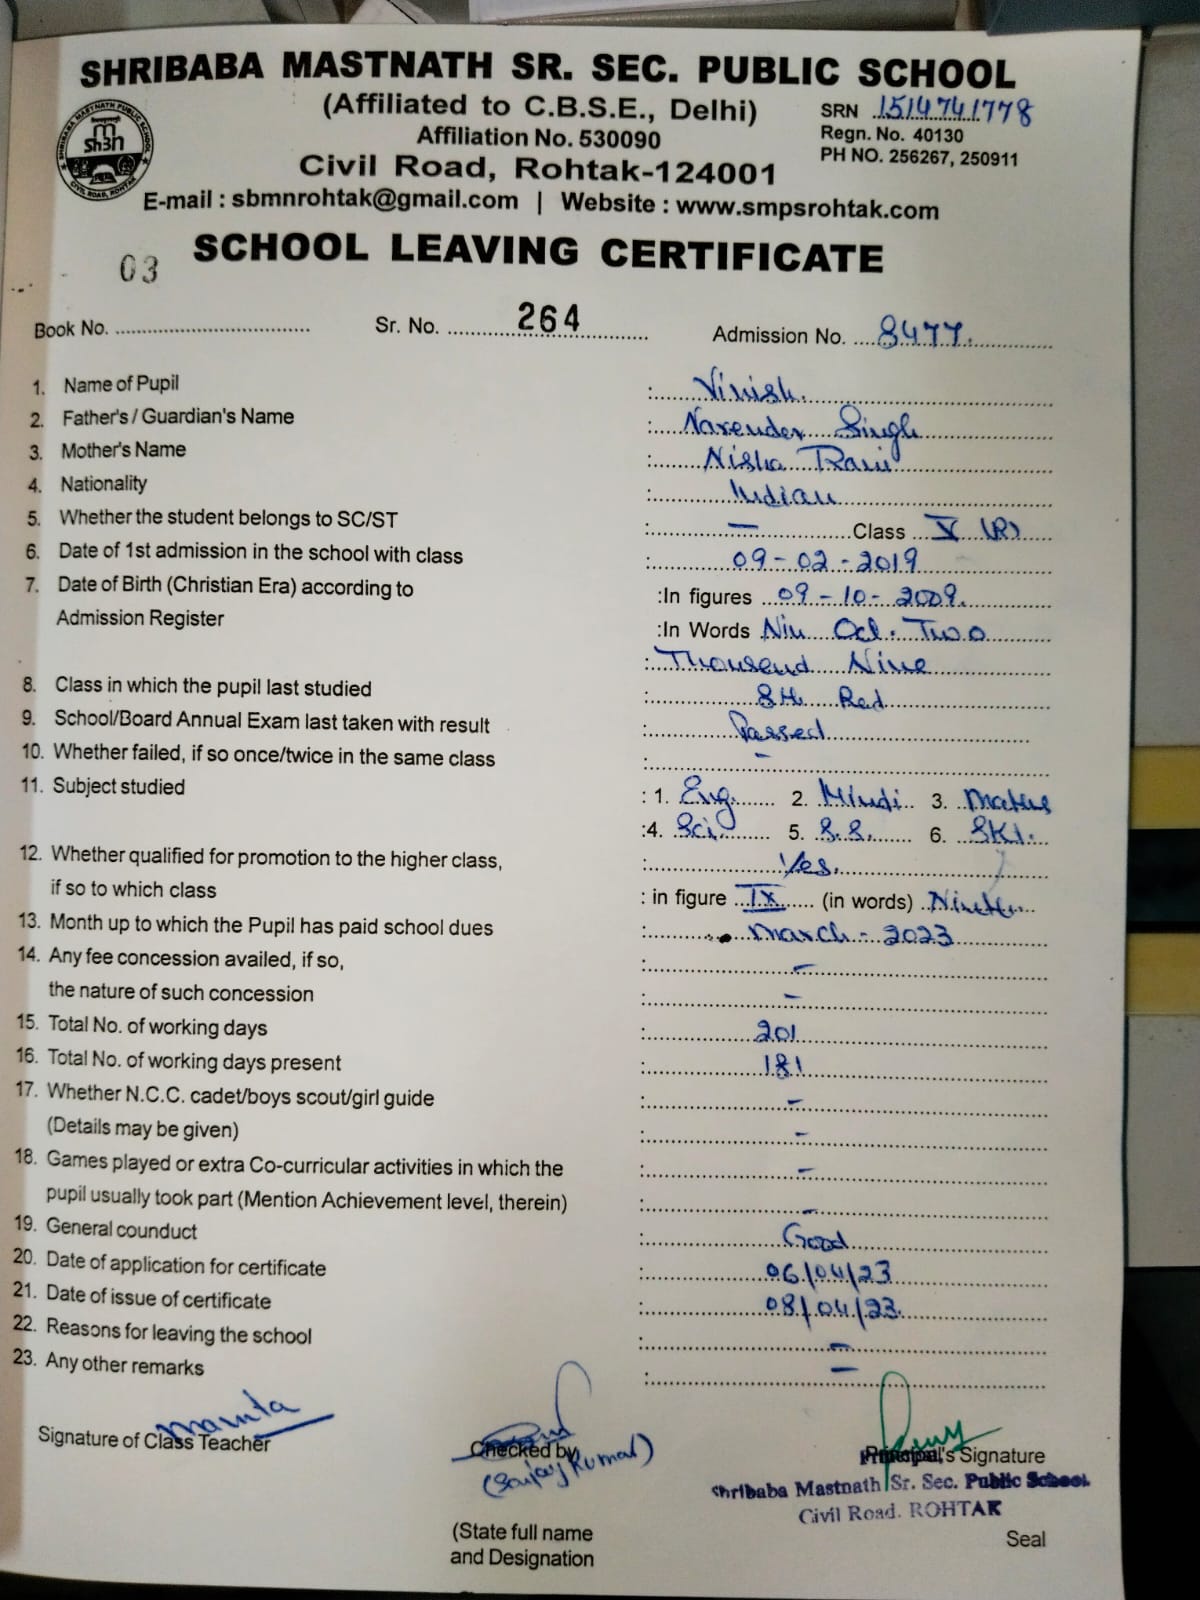 SHRIBABA MASTNATH SR. SEC. PUBLIC SCHOOL
(Affiliated to C.B.S.E., Delhi)
SRN 1514741778
Affiliation No. 530090
Regn. No. 40130
Civil Road, Rohtak-124001
PH NO. 256267, 250911
E-mail : sbmnrohtak@gmail.com | Website : www.smpsrohtak.com
SCHOOL LEAVING CERTIFICATE
03
Book No. Sr. No. 264 Admission No. 8477.
1. Name of Pupil : Vinish.
2. Father's / Guardian's Name : Narender Singh
3. Mother's Name : Nisha Rani
4. Nationality : Indian
5. Whether the student belongs to SC/ST : — Class V (R)
6. Date of 1st admission in the school with class : 09-02-2019
7. Date of Birth (Christian Era) according to :In figures 09-10-2009.
Admission Register :In Words Nin Oct. Two
: Thousend Nine
8. Class in which the pupil last studied : 8th Red
9. School/Board Annual Exam last taken with result : Passed
10. Whether failed, if so once/twice in the same class : -
11. Subject studied : 1. Eng. 2. Hindi 3. Maths
:4. Sci 5. S.S. 6. SKt.
12. Whether qualified for promotion to the higher class, : Yes.
if so to which class : in figure IX (in words) Nineth
13. Month up to which the Pupil has paid school dues : March - 2023
14. Any fee concession availed, if so, : -
the nature of such concession : -
15. Total No. of working days : 201
16. Total No. of working days present : 181
17. Whether N.C.C. cadet/boys scout/girl guide : -
(Details may be given) : -
18. Games played or extra Co-curricular activities in which the : -
pupil usually took part (Mention Achievement level, therein) : -
19. General counduct : Good
20. Date of application for certificate : 06/04/23
21. Date of issue of certificate : 08/04/23.
22. Reasons for leaving the school : -
23. Any other remarks : -
Mamta
Signature of Class Teacher Checked by Principal's Signature
(Sanjay Kumar)
Shribaba Mastnath Sr. Sec. Public School
Civil Road. ROHTAK
(State full name
and Designation
Seal